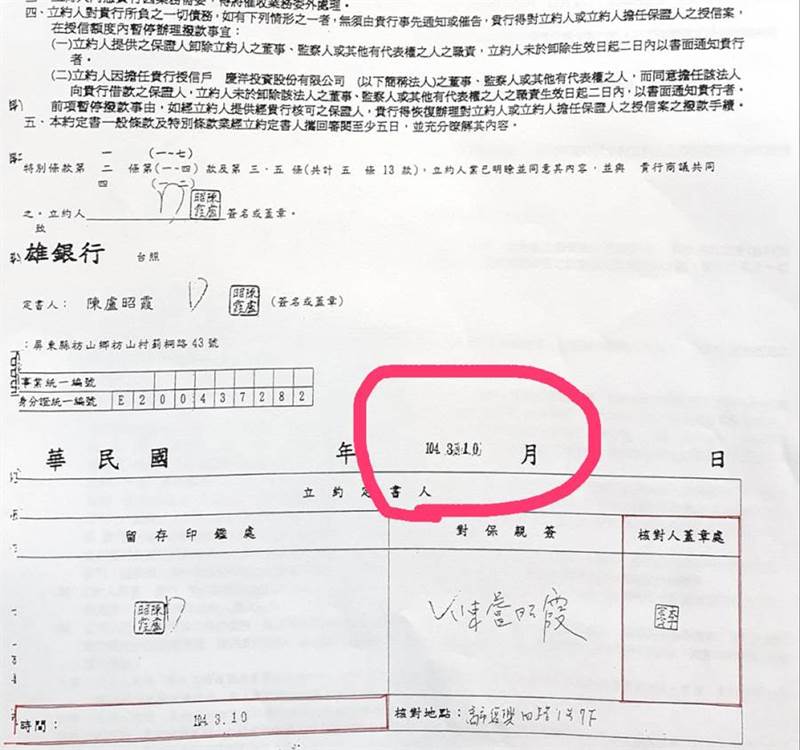 四、立約人對貴行所負之一切債務，如有下列情形之一者，無須由貴行事先通知或催告，貴行得對立約人或立約人擔任保證人之授信案，
在授信額度內暫停辦理撥款事宜：
(一)立約人提供之保證人卸除立約人之董事、監察人或其他有代表權之人之職責，立約人未於卸除生效日起二日內以書面通知貴行
者。
(二)立約人因擔任貴行授信戶 慶洋投資股份有限公司 (以下簡稱法人)之董事、監察人或其他有代表權之人，而同意擔任該法人
向貴行借款之保證人，立約人未於卸除該法人之董事、監察人或其他有代表權之人之職責生效日起二日內，以書面通知貴行者。
前項暫停撥款事由，如經立約人提供經貴行核可之保證人，貴行得恢復辦理對立約人或立約人擔任保證人之授信案之撥款手續。
五、本約定書一般條款及特別條款業經立約定書人攜回審閱至少五日，並充分瞭解其內容。
一 (一-七)
特別條款第 二 條第(一-四) 款及第 三、五 條(共計 五 條 13 款)，立約人業已明瞭並同意其內容，並與 貴行商議共同
四
之。立約人 昭陳霞盧 簽名或蓋章。
致
雄銀行 台照
定書人： 陳盧昭霞 昭陳霞盧 (簽名或蓋章)
：屏東縣枋山鄉枋山村莿桐路43號
事業統一編號
身分證統一編號 E200437282
華民國 年 104.3.10 月 日
立約定書人
留存印鑑處 對保親簽 核對人蓋章處
昭陳霞盧 陳盧昭霞
時間： 104.3.10 核對地點：